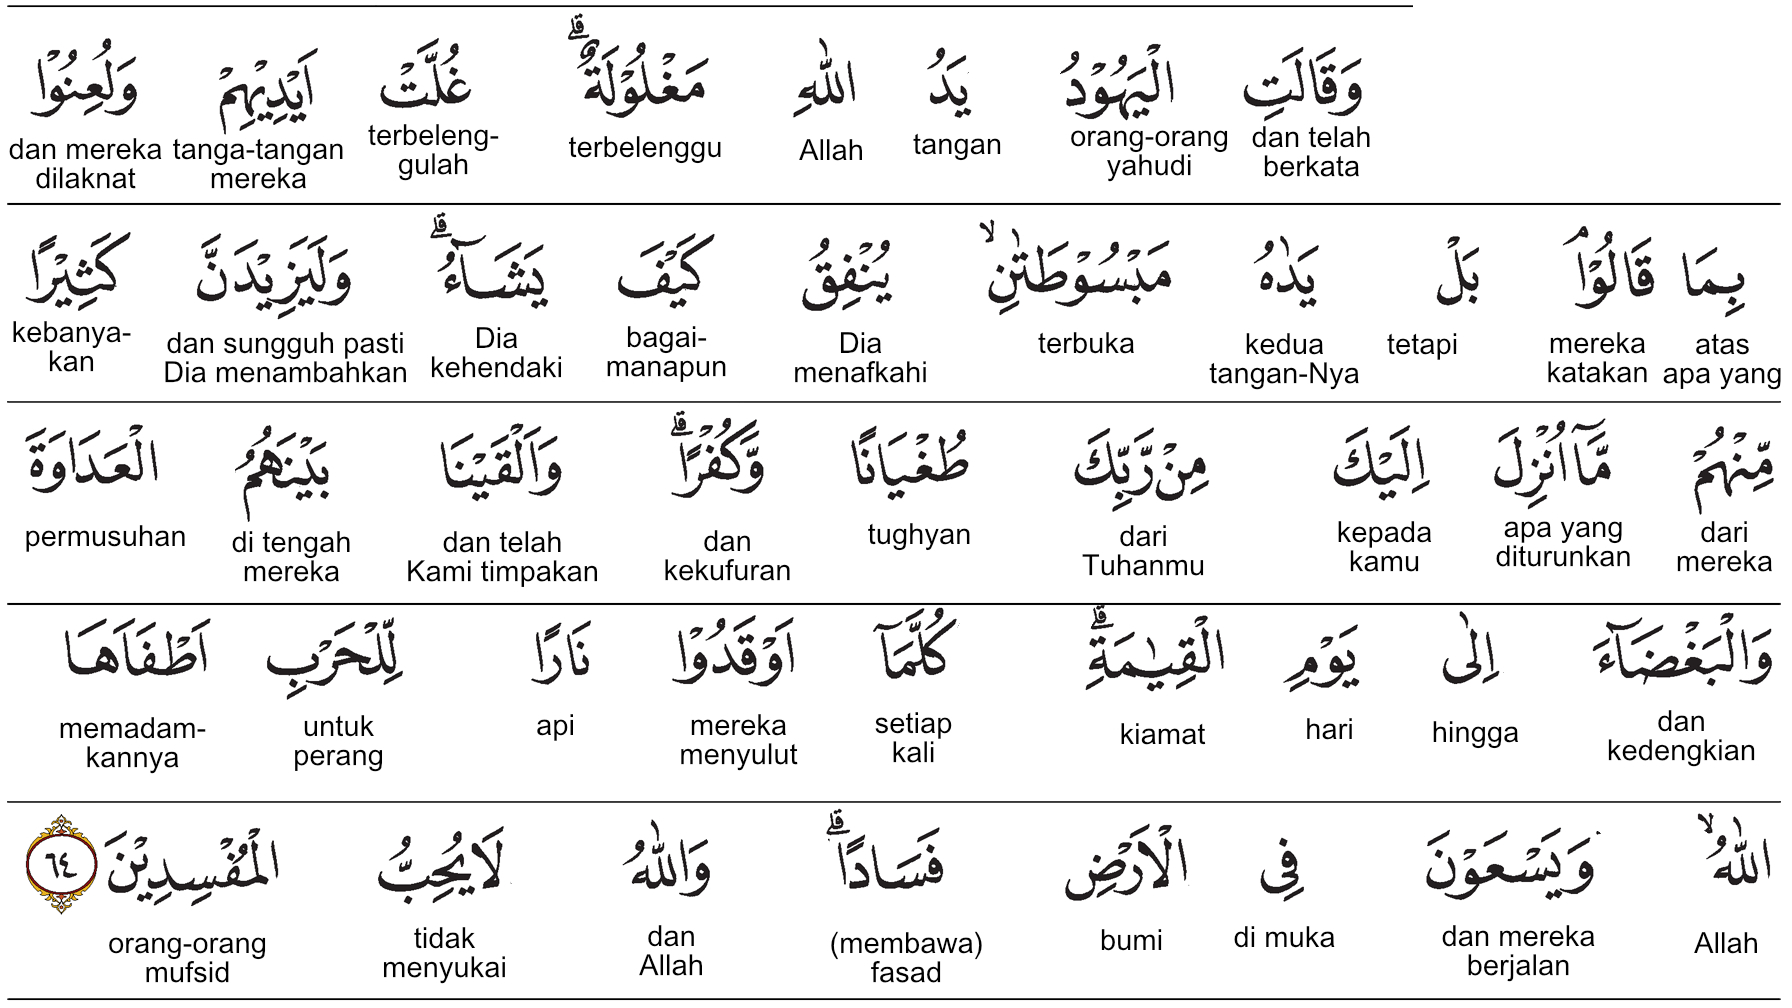 وَقَالَتِ الْيَهُوْدُ يَدُ اللّٰهِ مَغْلُوْلَةٌ ۗ غُلَّتْ اَيْدِيْهِمْ وَلُعِنُوْا
dan telah berkata orang-orang yahudi tangan Allah terbelenggu terbeleng-gulah tanga-tangan mereka dan mereka dilaknat
بِمَا قَالُوْا ۘ بَلْ يَدٰهُ مَبْسُوْطَتٰنِ ۙ يُنْفِقُ كَيْفَ يَشَاۤءُ ۗ وَلَيَزِيْدَنَّ كَثِيْرًا
atas apa yang mereka katakan tetapi kedua tangan-Nya terbuka Dia menafkahi bagai-manapun Dia kehendaki dan sungguh pasti Dia menambahkan kebanya-kan
مِّنْهُمْ مَّآ اُنْزِلَ اِلَيْكَ مِنْ رَّبِّكَ طُغْيَانًا وَّكُفْرًا ۗ وَاَلْقَيْنَا بَيْنَهُمُ الْعَدَاوَةَ
dari mereka apa yang diturunkan kepada kamu dari Tuhanmu tughyan dan kekufuran dan telah Kami timpakan di tengah mereka permusuhan
وَالْبَغْضَاۤءَ اِلٰى يَوْمِ الْقِيٰمَةِ ۗ كُلَّمَآ اَوْقَدُوْا نَارًا لِّلْحَرْبِ اَطْفَاَهَا
dan kedengkian hingga hari kiamat setiap kali mereka menyulut api untuk perang memadam-kannya
اللّٰهُ ۙ وَيَسْعَوْنَ فِى الْاَرْضِ فَسَادًا ۗ وَاللّٰهُ لَا يُحِبُّ الْمُفْسِدِيْنَ ٦٤
Allah dan mereka berjalan di muka bumi (membawa) fasad dan Allah tidak menyukai orang-orang mufsid